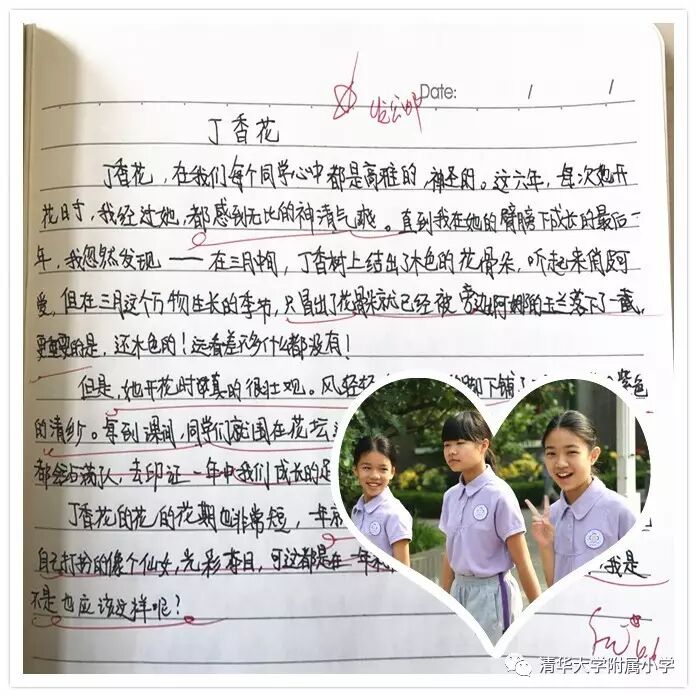 Date: / /
丁香花
丁香花，在我们每个同学心中都是高雅的、神圣的。这六年，每次她开
花时，我经过她，都感到无比的神清气爽。直到我在她的臂膀下成长的最后一
年，我忽然发现——在三月中旬，丁香树上结出了木色的花骨朵，听起来俏皮可
爱，但在三月这个万物生长的季节，只冒出了花骨朵就已经被旁边婀娜的玉兰落下了一截，
更重要的是，还木色的！远看差不多什么都没有！
但是，她开花时真的很壮观。风轻轻 脚下铺了 紫色
的清纱。每到课间，同学们就围在花坛
都会占满队，去印证一年中我们成长的足
丁香花的花的花期也非常短，一年
自己打扮的像个仙女，光彩夺目，可这都是在一年 ，我是
不是也应该这样呢？
清华大学附属小学